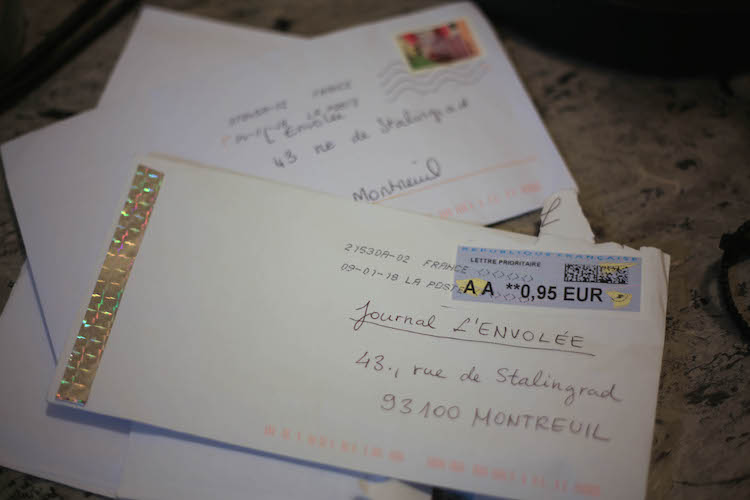 FRANCE
LA POSTE
L'Envolée
43 rue de Stalingrad
Montreuil
21530A-02 FRANCE
09-01-18 LA POSTE
RÉPUBLIQUE FRANÇAISE
LETTRE PRIORITAIRE
AA **0,95 EUR
Journal L'ENVOLÉE
43., rue de Stalingrad
93100 MONTREUIL